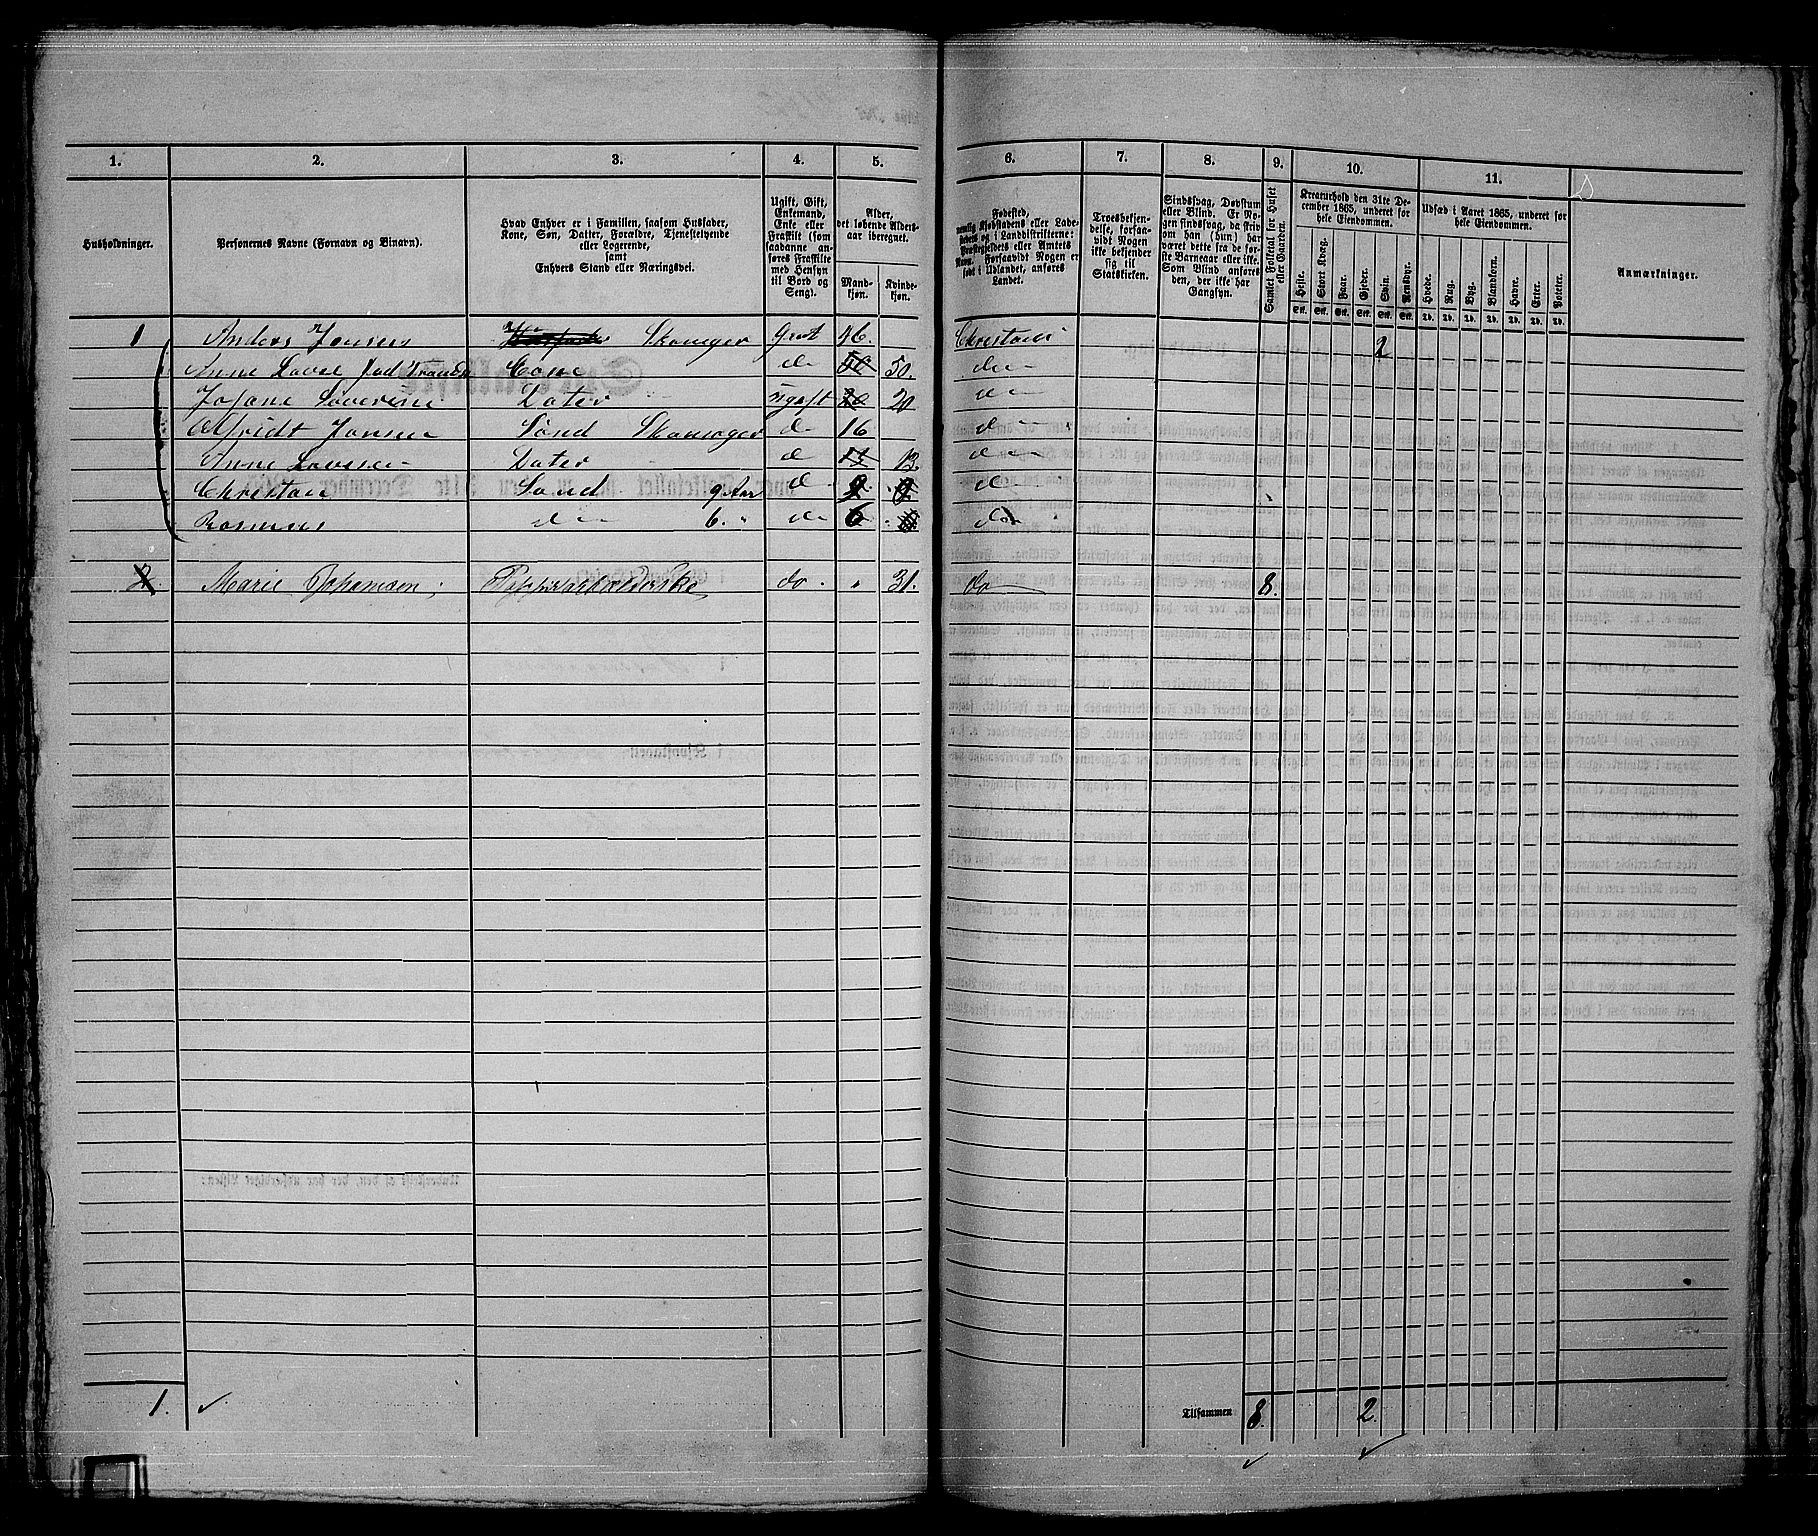 1. 2. 3. 4. 5. 6. 7. 8. 9. 10. 11.
Husholdninger.
Personernes Navne (Fornavn og Binavn).
Hvad Enhver er i Familien, saasom Husfader,
Kone, Søn, Datter, Forældre, Tjenestetyende
eller Logerende,
samt
Enhvers Stand eller Næringsvei.
Ugift, Gift,
Enkemand,
Enke eller
Fraskilt (som
saadanne an-
føres Fraskilte
med Hensyn
til Bord og
Seng).
Alder,
det løbende Alders-
aar iberegnet.
Mand-
kjøn.
Kvinde-
kjøn.
Fødested,
nemlig Kjøbstadens eller Lade-
stedets og i Landdistrikterne:
Præstegjeldets eller Amtets
Navn. Forsaavidt Nogen er
født i Udlandet, anføres
Landet.
Troesbekjen-
delse, forsaa-
vidt Nogen
ikke bekjender
sig til
Statskirken.
Sindssvag, Døvstum
eller Blind. Er No-
gen sindssvag, da skriv
om han (hun) har
været dette fra de før-
ste Barneaar eller ikke.
Som Blind anføres
den, der ikke har
Gangsyn.
Samlet Folketal for Huset
eller Gaarden.
Kreaturhold den 31te De-
cember 1865, underet for
hele Eiendommen.
Heste. Stort Kvæg. Faar. Gjeder. Svin. Rensdyr.
St. St. St. St. St. St.
Udsæd i Aaret 1865, underet for
hele Eiendommen.
Hvede. Rug. Byg. Blandkorn. Havre. Erter. Poteter.
Td. Td. Td. Td. Td. Td. Td.
Anmærkninger.
1 Anders Jansen Skomager givt 46. Christania 2
Anne Lovise Cone do 50 50. do
Josane Severine Dater ugift 20 20 do
Alfridt Jansen Sønd Skomager do 16 do
Anne Lovise Dater do 13 13. do
Christan Sønd 9 Aar do 9. 9. do
Rasmus do 6. " do 6 do
2 Marie Johansen do. " 31. do 8.
1.
Tilsammen 8. 2.